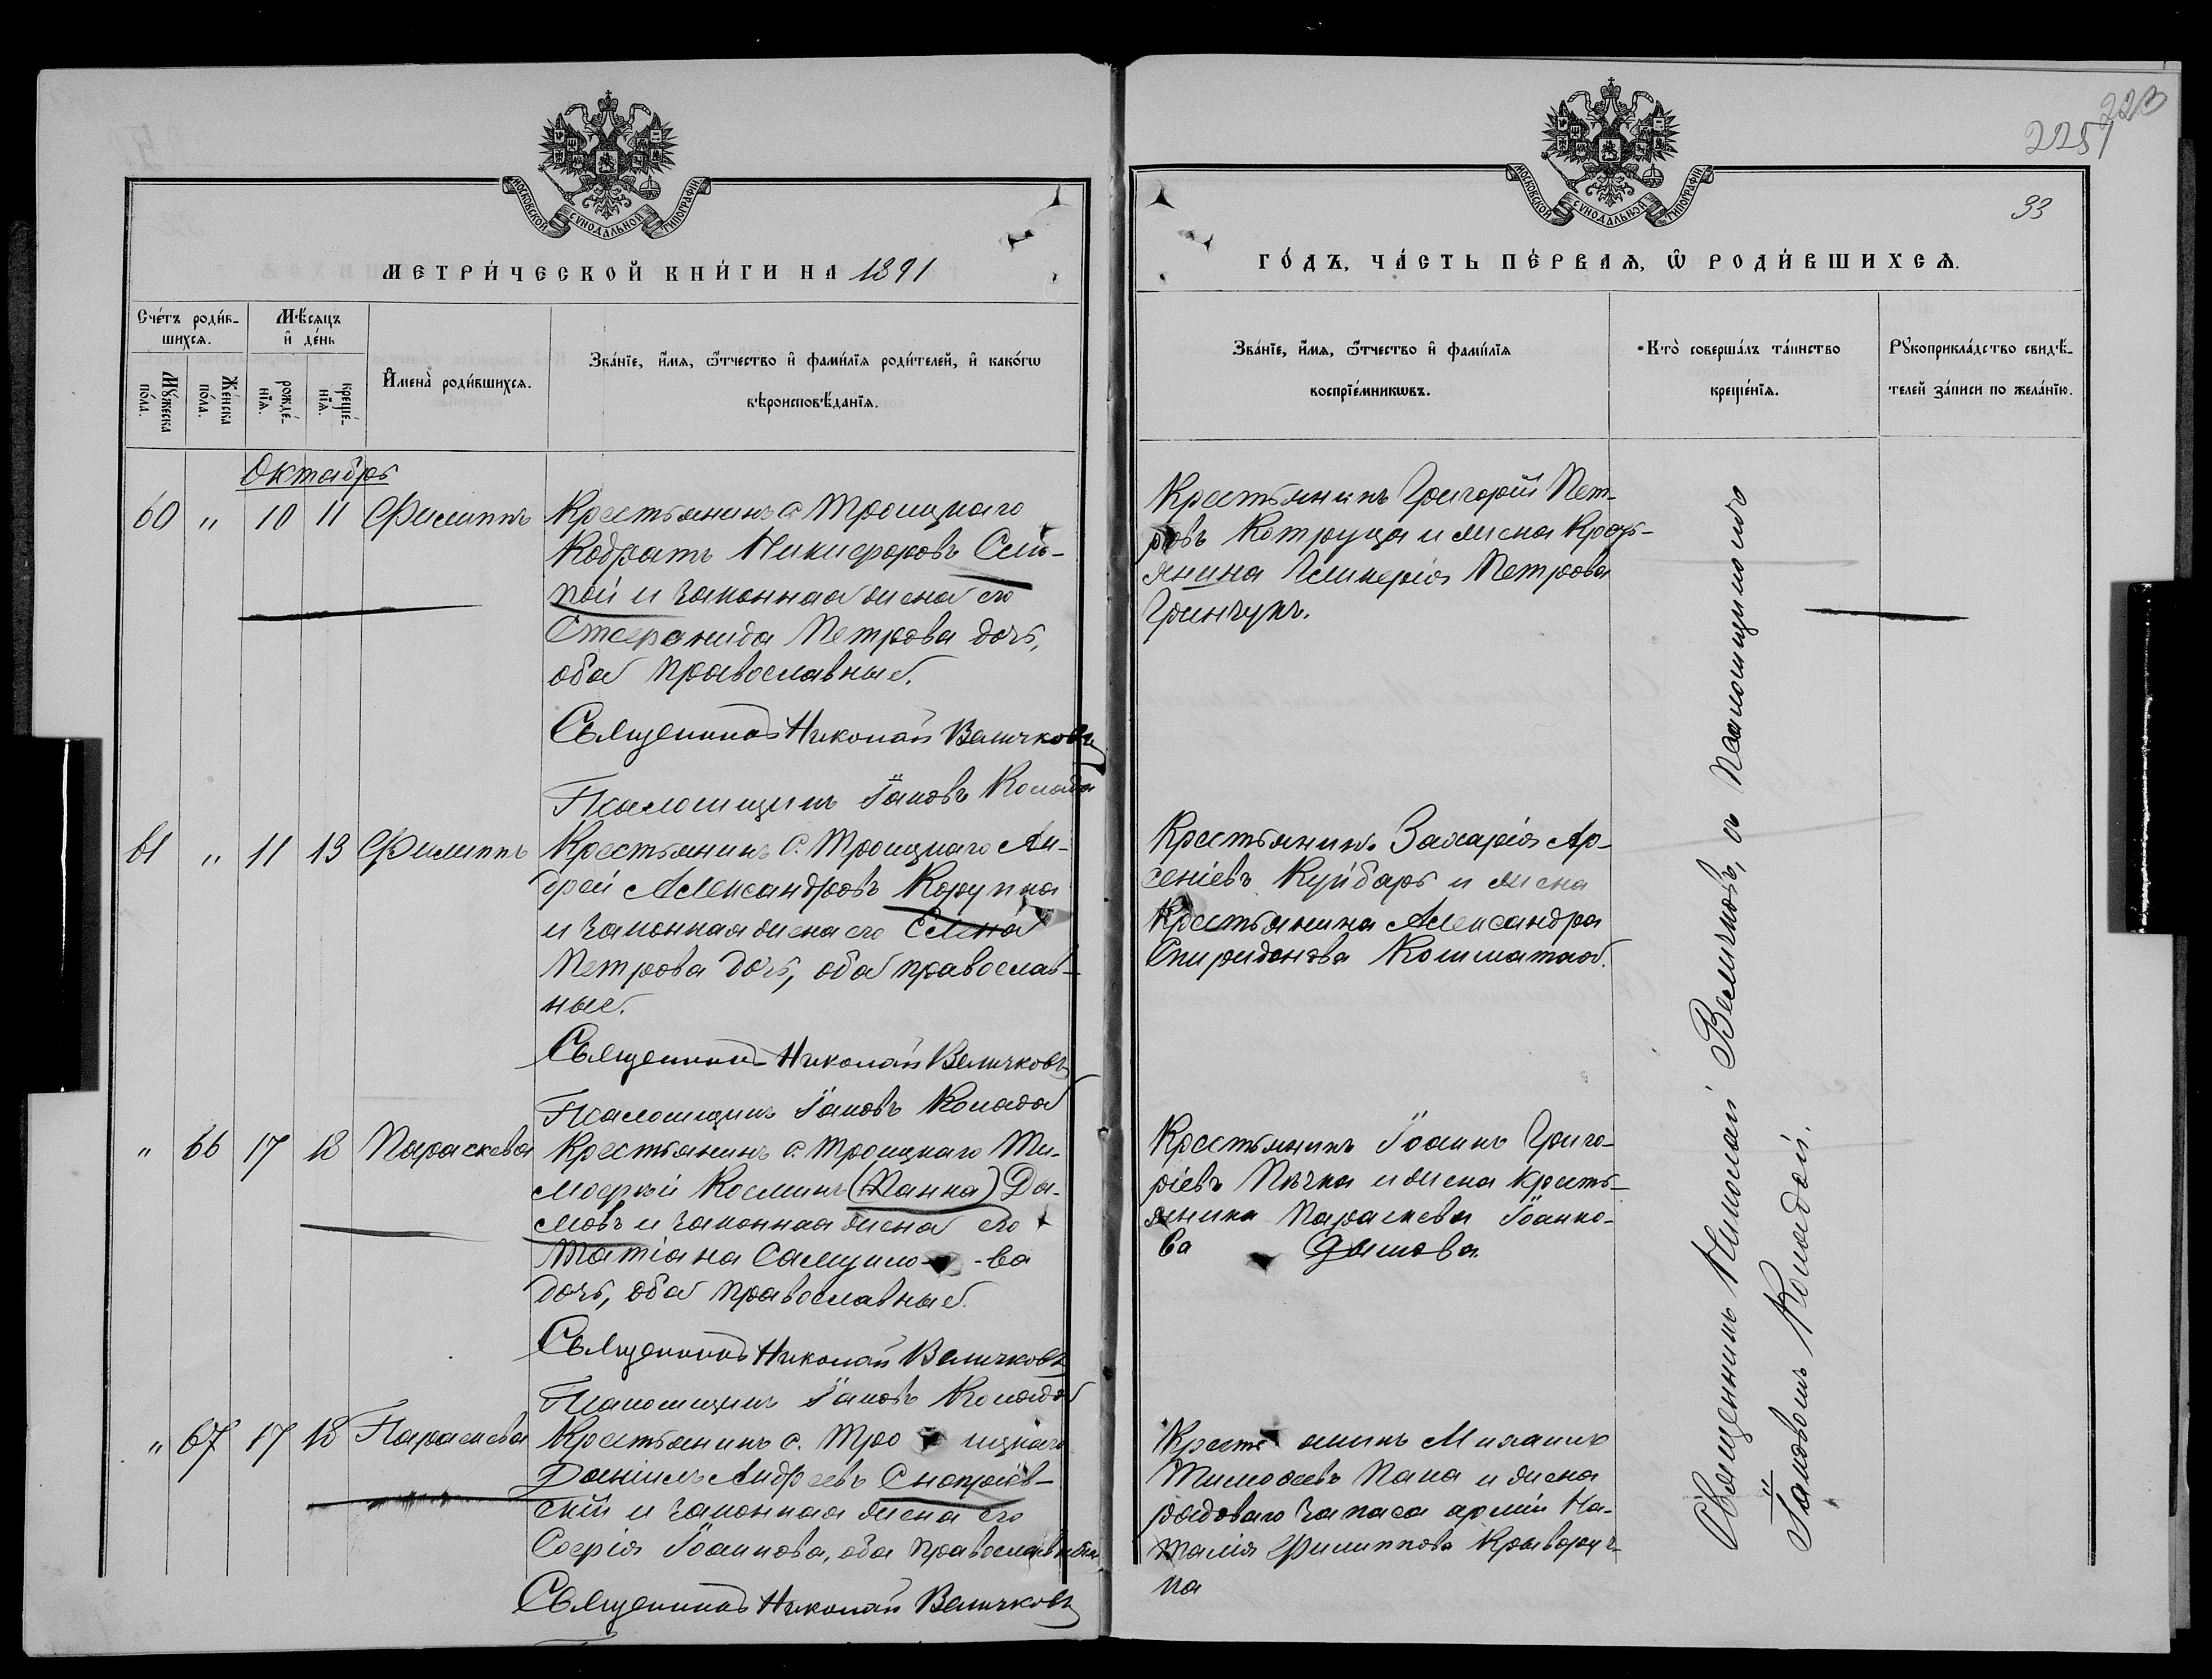 МОСКОВСКОЙ СѴНОДАЛЬНОЙ ТИПОГРАФІИ
МЕТРИ́ЧЕСКОЙ КНИ́ГИ НА 1891
Сче́тъ роди́в-
шихсѧ.
Мꙋ́жеска
по́ла.
Же́нска
по́ла.
Мѣ́сѧцъ
и҆ де́нь
рожде́-
нїѧ.
креще́-
нїѧ.
И҆мена̀ роди́вшихсѧ.
Зва́нїе, и҆́мѧ, ѻ҆́тчество и҆ фами́лїѧ роди́телей, и҆ како́гѡ
вѣроисповѣ́данїѧ.
Октябрь
60 " 10 11 Филиппъ
Крестьянинъ с. Троицкаго
Кодратъ Никифоровъ Слѣ-
пой и законная жена его
Стефанида Петрова дочь,
оба православные.
Священникъ Николай Величковъ
Псаломщикъ Іаковъ Колода
61 " 11 13 Филиппъ
Крестьянинъ с. Троицкаго Ан-
дрей Александровъ Корупка
и законная жена его Елена
Петрова дочь, оба православ-
ные.
Священникъ Николай Величковъ
Псаломщикъ Іаковъ Колода
" 66 17 18 Параскева
Крестьянинъ с. Троицкаго Ти-
мофей Косминъ (Панка) Да-
мовъ и законная жена его
Татіана Самуило-ва
дочь, оба православные.
Священникъ Николай Величковъ
Псаломщикъ Іаковъ Колода
" 67 17 18 Параскева
Крестьянинъ с. Троицкаго
Даніилъ Андреевъ
скій и законная жена его
Софія Іоаннова, оба православные
Священникъ Николай Величковъ
223
2251
33
МОСКОВСКОЙ СѴНОДАЛЬНОЙ ТИПОГРАФІИ
ГО́ДЪ, ЧА́СТЬ ПЕ́РВАѦ, Ѡ҆ РОДИ́ВШИХСѦ.
Зва́нїе, и҆́мѧ, ѻ҆́тчество и҆ фами́лїѧ
воспрїе́мникѡвъ.
Кто̀ соверша́лъ та́инство
креще́нїѧ.
Рꙋкоприкла́дство свидѣ́-
телей за́писи по жела́нїю.
Крестьянинъ Григорій Пет-
ровъ Котруца и жена кресть-
янина Гликерія Петрова
Гринчукъ.
Крестьянинъ Захарія Ар-
сеніевъ Куйбарь и жена
Крестьянина Александра
Спиридонова
Крестьянинъ Іоаннъ Григо-
ріевъ Пѣчка и жена кресть-
янина Параскева Іоанно-
ва Дамова.
Крестьянинъ Михаилъ
Тимофеевъ Папа и жена
рядоваго запаса арміи На-
талія Филиппова Криворуч-
ка
Священникъ Николай Величковъ, и Псаломщикомъ
Іаковомъ Колодой.